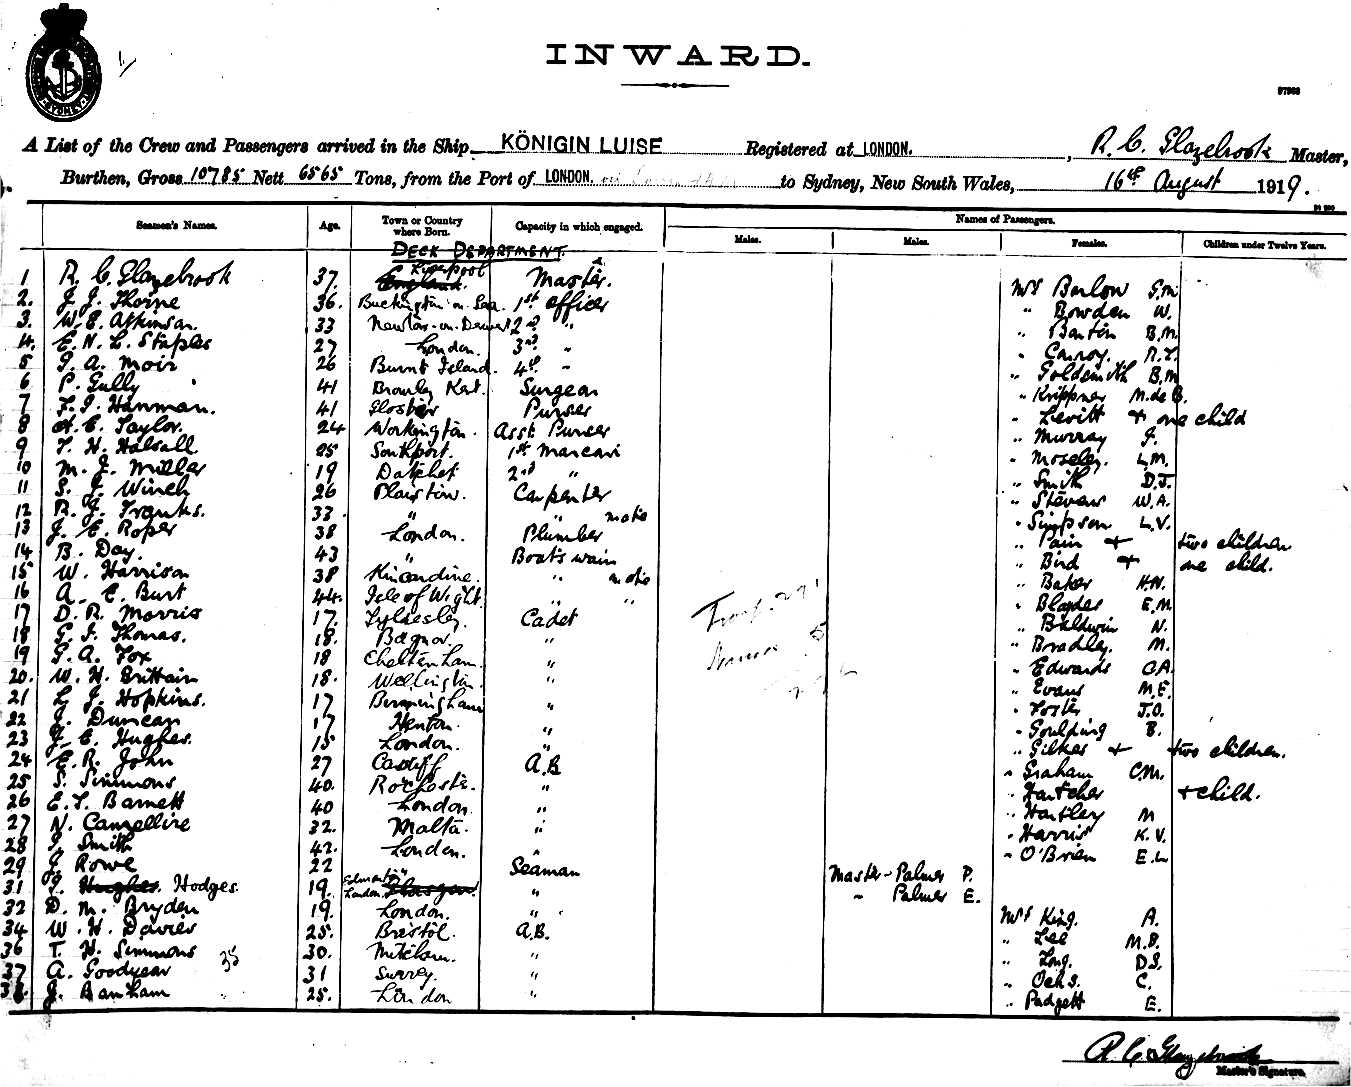 INWARD.
97968
A List of the Crew and Passengers arrived in the Ship KÖNIGIN LUISE Registered at LONDON. , R. C. Glazebrook Master,
Burthen, Gross 10785 Nett 6565 Tons, from the Port of LONDON. to Sydney, New South Wales, 16th August 1919.
Seamen's Names. Age. Town or Country where Born. Capacity in which engaged. Names of Passengers.
Males. Males. Females. Children under Twelve Years.
DECK DEPARTMENT.
1 R. C. Glazebrook 37. Liverpool England. Master.
2. J. J. Thorne 36. Buckington on Sea 1st Officer
3. W. E. Atkinson. 33 2nd "
4. E. N. L. Staples 27 London. 3rd "
5 G. A. Moir 26 Burnt Island. 4th "
6 P. Gully 41 Bromley Kent. Surgeon
7 F. J. Hanman. 41 Gloster Purser
8 H. E. Taylor. 24 Workington. Asst. Purser
9 T. H. Halsall 25 Southport. 1st Marconi
10 M. J. Miller 19 Datchet 2nd "
11 S. J. Winch 26 Plaistow. Carpenter
12 R. J. Franks. 33 " " mate
13 J. E. Roper 38 London. Plumber
14 B. Day. 43 " Boatswain
15 W. Harrison 38 Kincardine. " mate
16 A. E. Burt 44. Isle of Wight. " "
17 D. R. Morris 17. Tyldesley. Cadet
18 G. J. Thomas. 18. Bognor. "
19 G. A. Fox 18 Cheltenham. "
20. W. H. Brittain 18. Wellington. "
21 L. J. Hopkins. 17 Birmingham "
22 J. Duncan 17 Henton. "
23 J. E. Hughes. 15 London. "
24 E. R. John 27 Cardiff A.B
25 S. Simmons 40. Rochester. "
26 E. T. Barnett 40 London. "
27 N. Camellire 32. Malta. "
28 J. Smith 42. London. "
29 J. Rowe 22 " Seaman
31 J. Hughes. Hodges. 19. Edmonton London. Glasgow. "
32 D. M. Bryden 19. London. "
34 W. H. Davies 25. Bristol. A.B.
36 T. H. Simmons 35 30. Mitcham. "
37 A. Goodyear 31 Surrey. "
38 J. Banham 25. London "
Mrs Barlow G.M
" Bowden W.
" Barton B.M.
" Conroy. R.T.
" Goldsmith B.M
" Krippner M. de B.
" Levitt + one child
" Murray J.
" Moseley. L.M.
" Smith D.J.
" Stevens W.A.
" Simpson L.V.
" Pain + two children
" Bird + one child.
" Baker H.N.
" Blaydes E.M
" Baldwin N.
" Bradley. M.
" Edwards O.A.
" Evans M.E.
" Foster J.O.
" Goulding B.
" Gilkes + two children.
" Graham C.M.
" Hatcher + child.
" Hartley M
" Harris K.V.
" O'Brien E.L
Master Palmer P.
" Palmer E.
Mrs King. A.
" Lee M.B.
" Long. D.S.
" Ochs. C.
" Padgett E.
R. C. Glazebrook
Master's Signature.